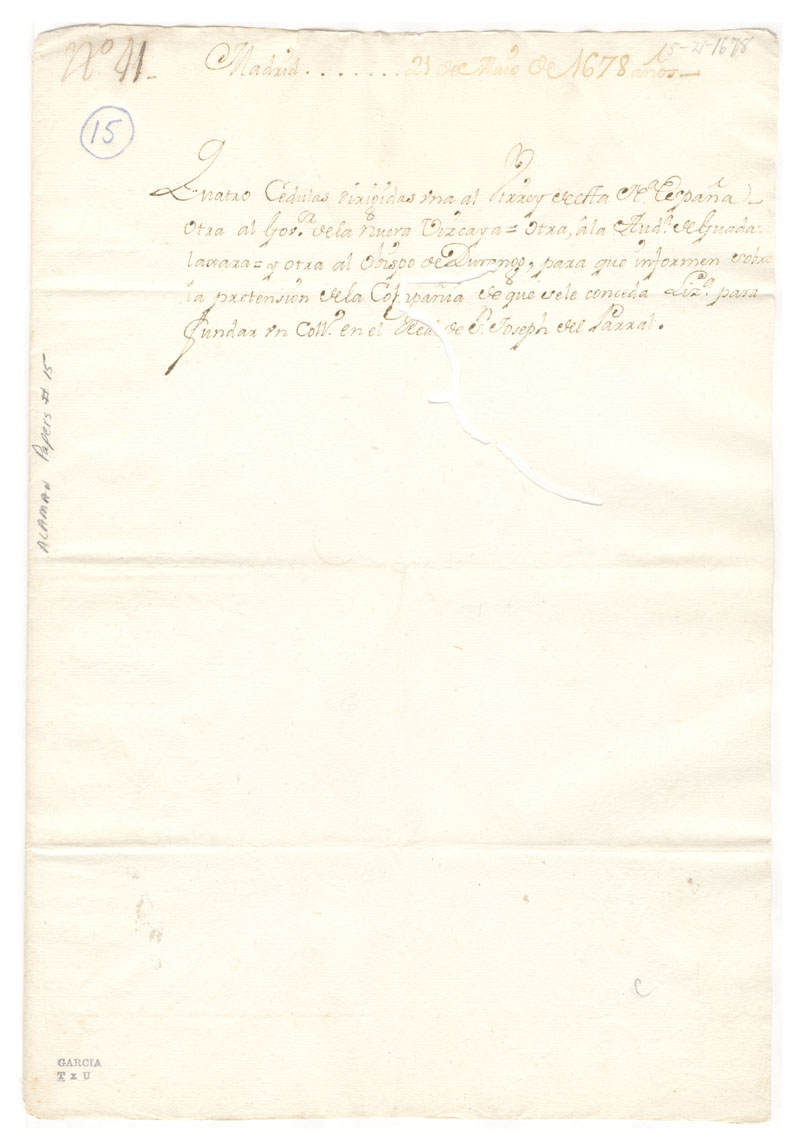 Nº 41_
Madrid ........ 21 de Maio de 1678 años_
5-21-1678
15
Quatro Cedulas dirigidas vna al Virrey de esta Nª España
otra al Gorº de la nueva Vizcaya = otra, á la Audª de Guada-
laxara = y otra al Obispo de Durango, para que informen sobre
la pretensión de la Compañia de que se le conceda Lizª para
fundar vn Collº en el Real de S. Joseph del Parral.
ALAMAN Papers # 15
C
GARCIA
T x U